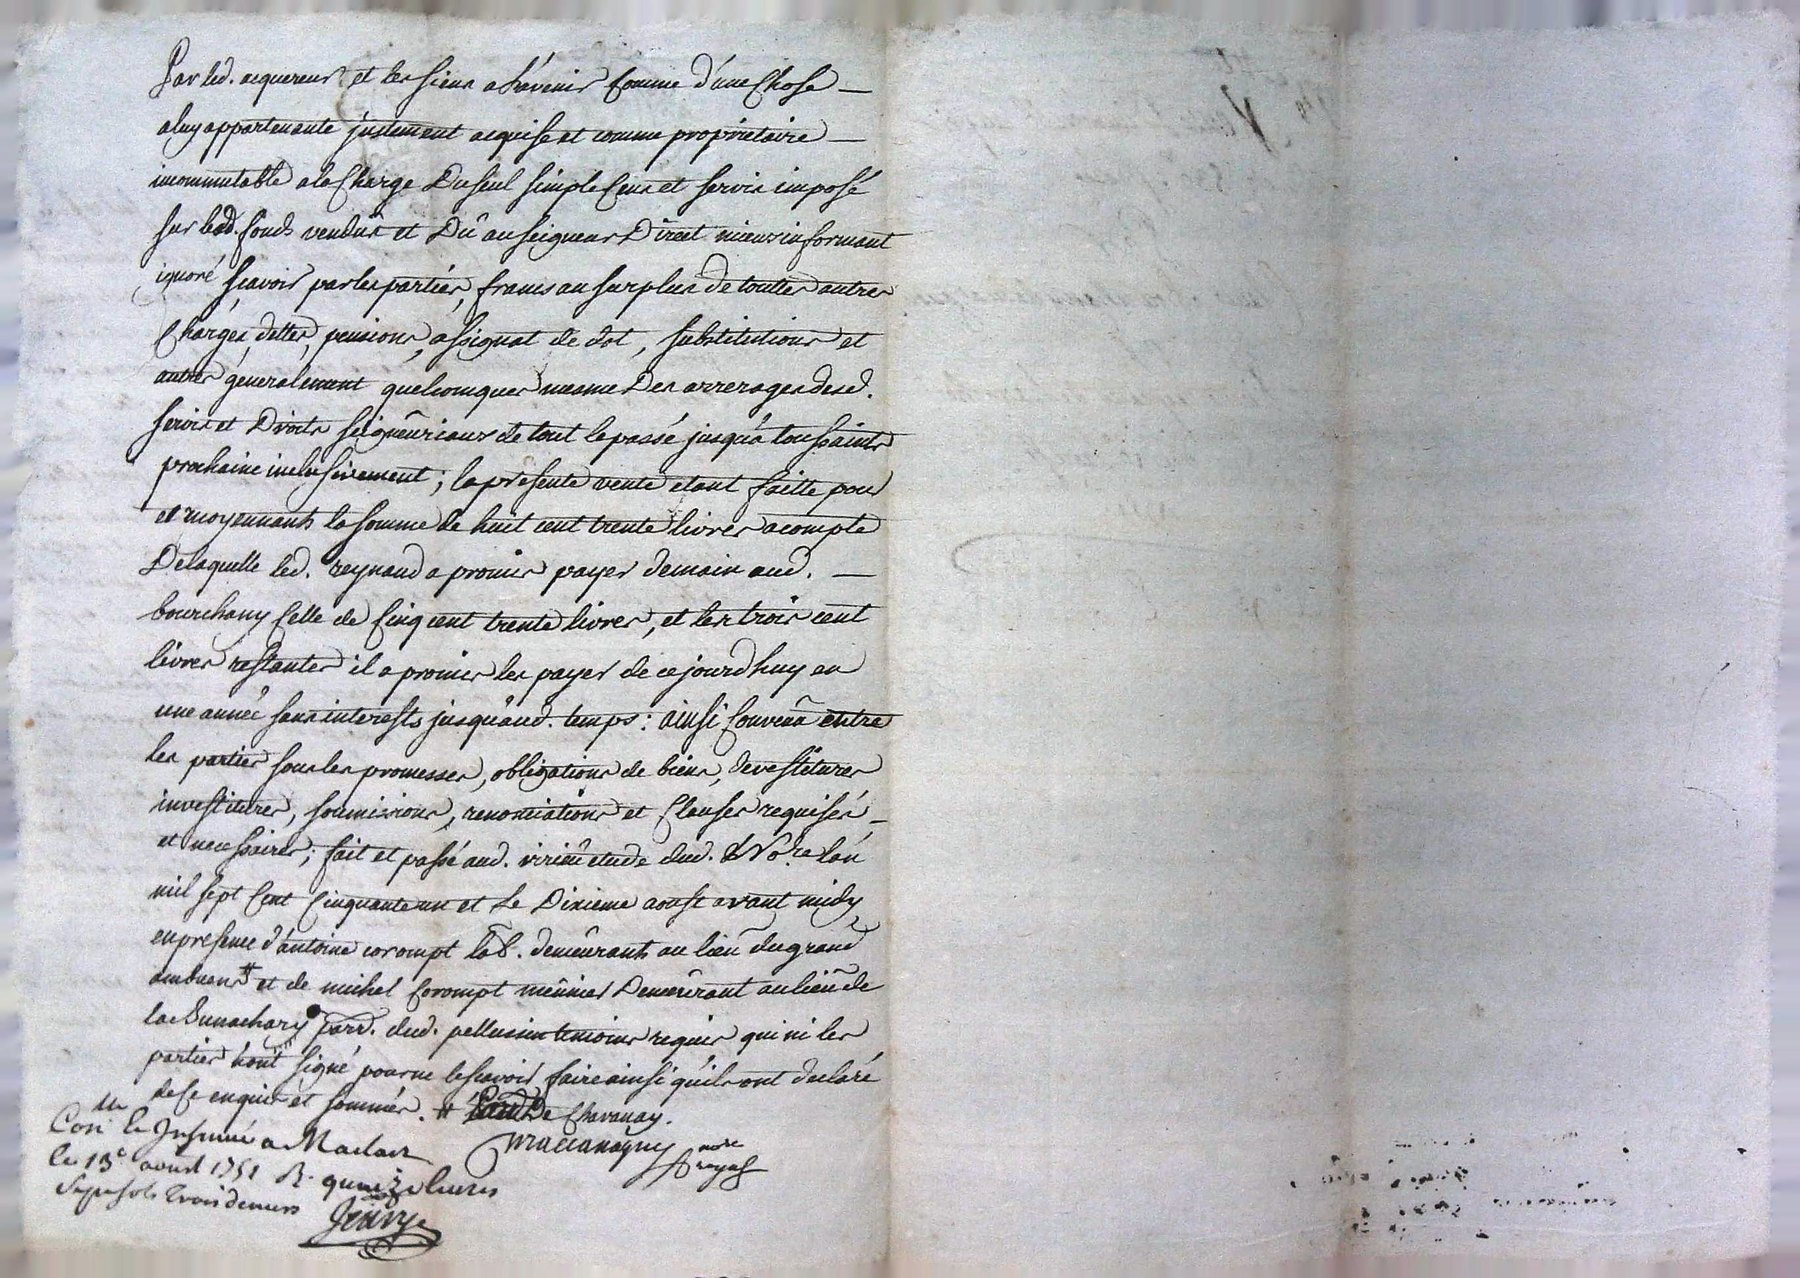 Par led. acquereur et les siens a l'avenir comme d'une chose
a luy appartenante justement acquise et comme proprietaire
incommutable a la charge du seul simple cens et servis imposé
sur lesd. fonds vendus et dû au seigneur direct mieux informant
ignoré scavoir par les parties, francs au surplus de touttes autres
charges, dettes, pensions, assignat de dot, substitutions et
autres géneralement quelconques mesme des arrerages desd.
servis et droits seigneuriaux de tout le passé jusqu'a toussaints
prochaine inclusivement; la presente vente etant faitte pour
et moyennants la somme de huit cent trente livres acompte
de laquelle led. reynaud a promis payer demain aud.
bourchany celle de cinq cent trente livres, et les trois cent
livres restantes il a promis les payer de ce jourd'huy en
une année sans interests jusqu'aud. temps: ainsi convenu entre
les parties sous les promesses, obligations de biens, devestitures
investitures, soumissions, renonciations et clauses requises
et necessaires; fait et passé aud. virieu etude dud. No.re l'an
mil sept cent cinquante un et le dixieme aoust avant midy
en presence d'antoine corompt lab. demeurants au lieu du grand
# et de michel corompt meûnier demeûrant au lieu de
parr. dud. pellussin temoins requis qui ni les
parties n'ont signé pour ne le scavoir faire ainsi qu'ils ont declaré
de ce enquis et sommés. # de Chavanay.
Con.lé Insinué a Maclas
no.re
royal
le 13e aoust 1751 R. quinze livres
sept sols trois deniers